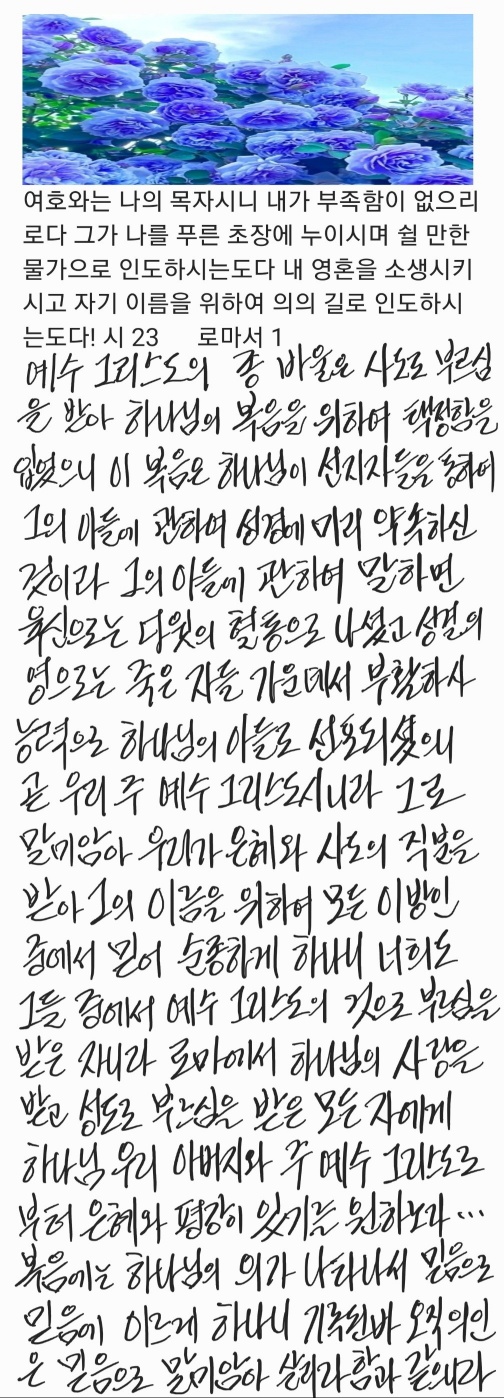 여호와는 나의 목자시니 내가 부족함이 없으리
로다 그가 나를 푸른 초장에 누이시며 쉴 만한
물가으로 인도하시는도다 내 영혼을 소생시키
시고 자기 이름을 위하여 의의 길로 인도하시
는도다! 시 23 로마서 1
예수 그리스도의 종 바울은 사도로 부르심
을 받아 하나님의 복음을 위하여 택정함을
입었으니 이 복음은 하나님이 선지자들을 통하여
그의 아들에 관하여 성경에 미리 약속하신
것이라 그의 아들에 관하여 말하면
육신으로는 다윗의 혈통으로 나셨고 성결의
영으로는 죽은 자들 가운데서 부활하사
능력으로 하나님의 아들로 선포되셨으니
곧 우리 주 예수 그리스도시니라 그로
말미암아 우리가 은혜와 사도의 직분을
받아 그의 이름을 위하여 모든 이방인
중에서 믿어 순종하게 하나니 너희도
그들 중에서 예수 그리스도의 것으로 부르심을
받은 자니라 로마에서 하나님의 사랑을
받고 성도로 부르심을 받은 모든 자에게
하나님 우리 아버지와 주 예수 그리스도로
부터 은혜와 평강이 있기를 원하노라...
복음에는 하나님의 의가 나타나서 믿음으로
믿음에 이르게 하나니 기록된바 오직 의인
은 믿음으로 말미암아 살리라 함과 같으니라